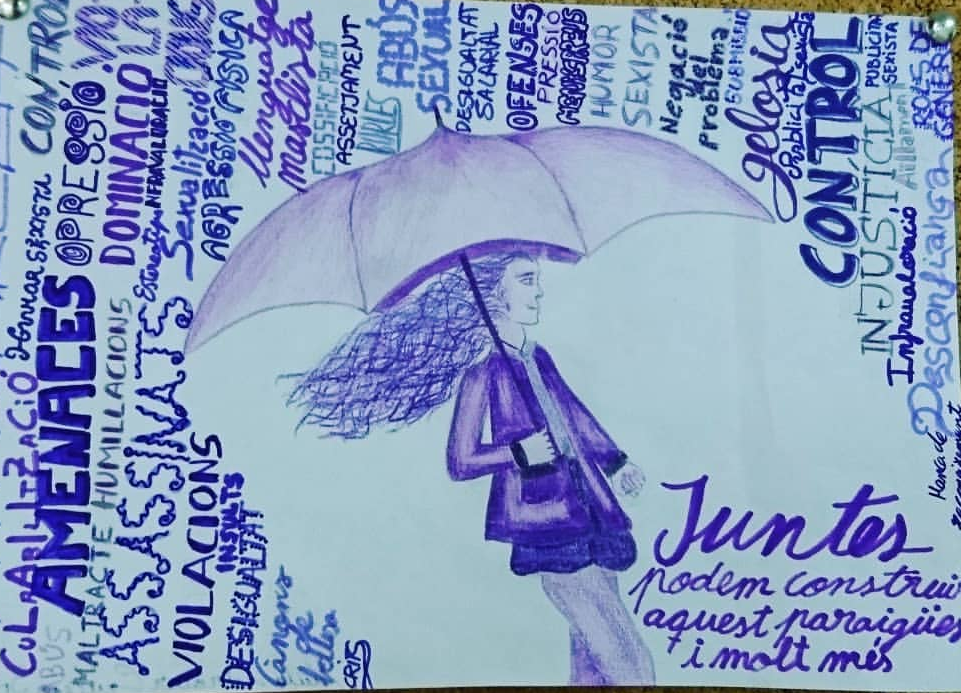 CULPABILITZACIÓ
ABÚS
AMENACES
MALTRACTE HUMILIACIONS
ASSASSINATS
VIOLACIONS
INSULTS
DESIGUALTAT
Cànons
bellesa
CRIS
CONTROL
OPRESSIÓ
DOMINACIÓ
INFRAVALORACIÓ
AGRESSIÓ FÍSICA
llenguatge
masclista
COSIFICACIÓ
ASSETJAMENT
BURLES
ABÚS
SEXUAL
DESIGUALTAT
SALARIAL
OFENSES
PRESSIÓ
MENYSPREUS
HUMOR
SEXISTA
Negació
del
problema
gelosia
Publicitat sexista
CONTROL
INJUSTÍCIA
PUBLICITAT
SEXISTA
Aïllament
Infravaloració
ROLS DE
GÈNERE
Desconfiança
Manca de
reconeixement
Juntes
podem construir
aquest paraigües
i molt més